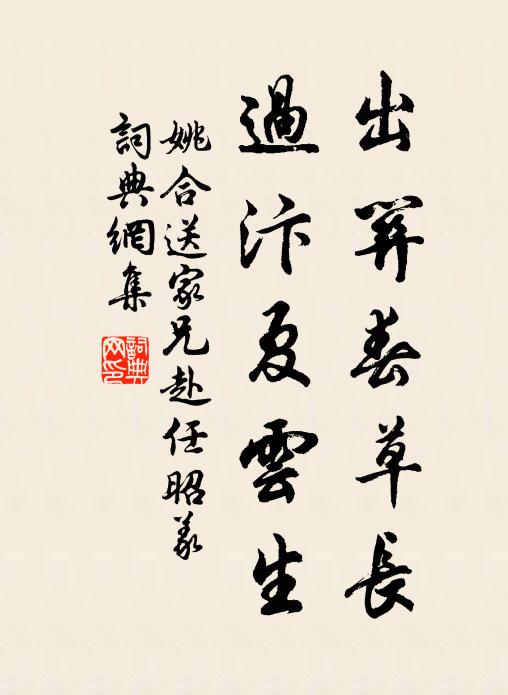 出關春草長
過汴夏雲生
姚合送家兄赴任昭義
詞典網集
詞典
网印